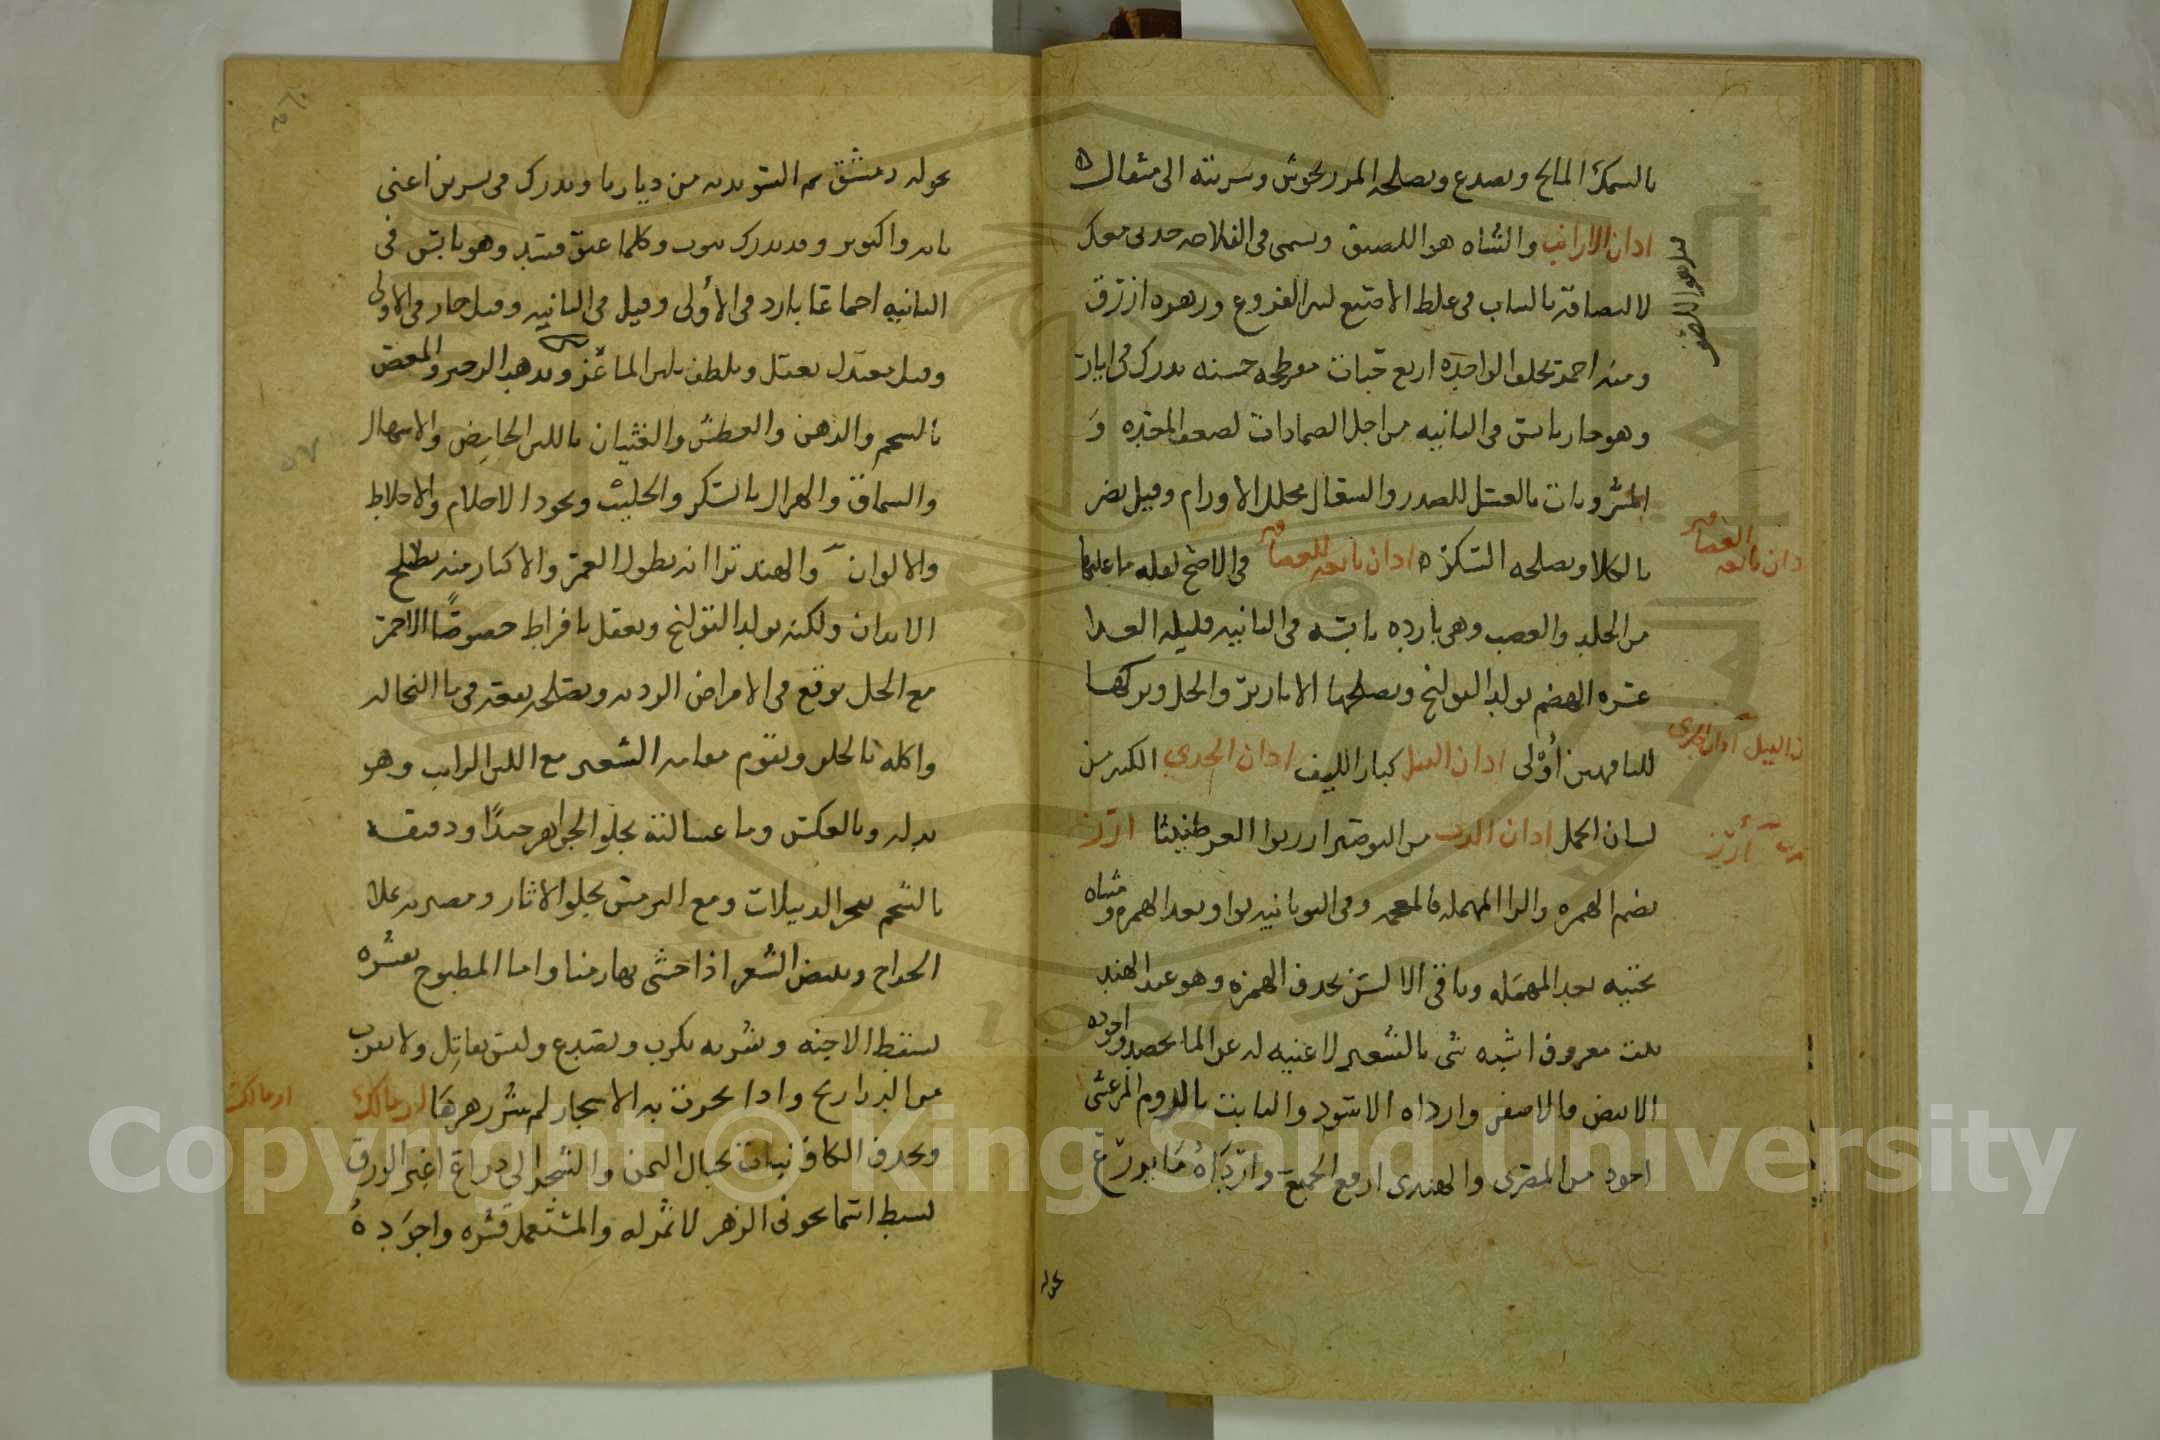 بالسمك المالح ويصدع ويصلحه المرزنجوش وشربته الى مثقال ه
اذان الارانب والشاه هو اللصيق ويسمى فى الفلاحه خذنى معك
لالتصاقه بالثياب فى غلظ الاصبع لين الفروع وزهره ازرق
ومنه احمر يخلف الواحده اربع حبات مفرطحه خشنه يدرك فى ايار
وهو حار يابس فى الثانيه من اجل الضمادات لضعف المعده و
المشروبات بالعسل للصدر والسعال محلل الاورام وقيل يضر
بالكلا ويصلحه السكر ه اذان فى الاصح لقله ما عليها
من الجلد والعصب وهى بارده يابسه فى الثانيه قليله الغذا
عسره الهضم تولد القولنج ويصلحها الابازير والخل وتركها
للناقهين أولى اذان الفيل كبار اللوف اذان الجدى الكبير من
لسان الحمل اذان الدب من البوصير ارزبوا العرطنيثا ارز
بضم الهمزه والرا المهمله فالمعجمه وفى اليونانيه بواو بعد الهمزه ومثناه
تحتيه بعد المهمله وباقى الالسن بحذف الهمزه وهو عند الهند
نبت معروف اشبه شى بالشعير لا غنيه له عن الما يحصد واجوده
الابيض فالاصفر وارداه الاسود والنابت بالروم المرعشى
اجود من المصرى والهندى ارفع الجميع واردأه ما يزرع
هو اللصيق
اذان الفيل اذان الجدى
أرز
حوله
حوله دمشق ثم السويديه من ديارنا ويدرك فى تشرين اعنى
بابه واكتوبر وقد يدرك بتوت وكلما عتق فسد وهو يابس فى
الثانيه اجماعا بارد فى الأولى وقيل فى الثانيه وقيل حار فى الاولى
وقيل معتدل يعقل ويلطف بلبن الماعز ويذهب الزحير والمغص
بالشحم والدهن والعطش والغثيان باللبن الحامض والاسهال
والسماق والهزال بالسكر والحليب ويجود الاحلام والاخلاط
والالوان والهند ترا انه يطول العمر والاكثار منه يصلح
الابدان ولكنه يولد القولنج ويعقل بافراط خصوصًا الاحمر
مع الخل يوقع فى الامراض الرديه ويصلحه نقعه فى ما النخاله
واكله بالحلو ويقوم مقامه الشعير مع اللبن الرايب وهو
بدله وبالعكس وما غسالته يجلو الجواهر جيدًا ودقيقه
بالشحم يفجر الدبيلات ومع الترمس يجلو الاثار ومصريه علا
الجراح ويبيض الشعر اذا حشى بها زمنا واما المطبوخ بقشره
يسقط الاجنه وشربه يكرب ويصدع وليس بقاتل ولا يقرب
من الذراريح واذا بخرت به الاشجار لم يسر زهرها ارمالك
وبحذف الكاف نبات بجبال اليمن والشحر الى ذراع اغبر الورق
بسيط اسمانجونى الزهر لا ثمر له والمستعمل قشره واجوده
ارمالك
٥٧